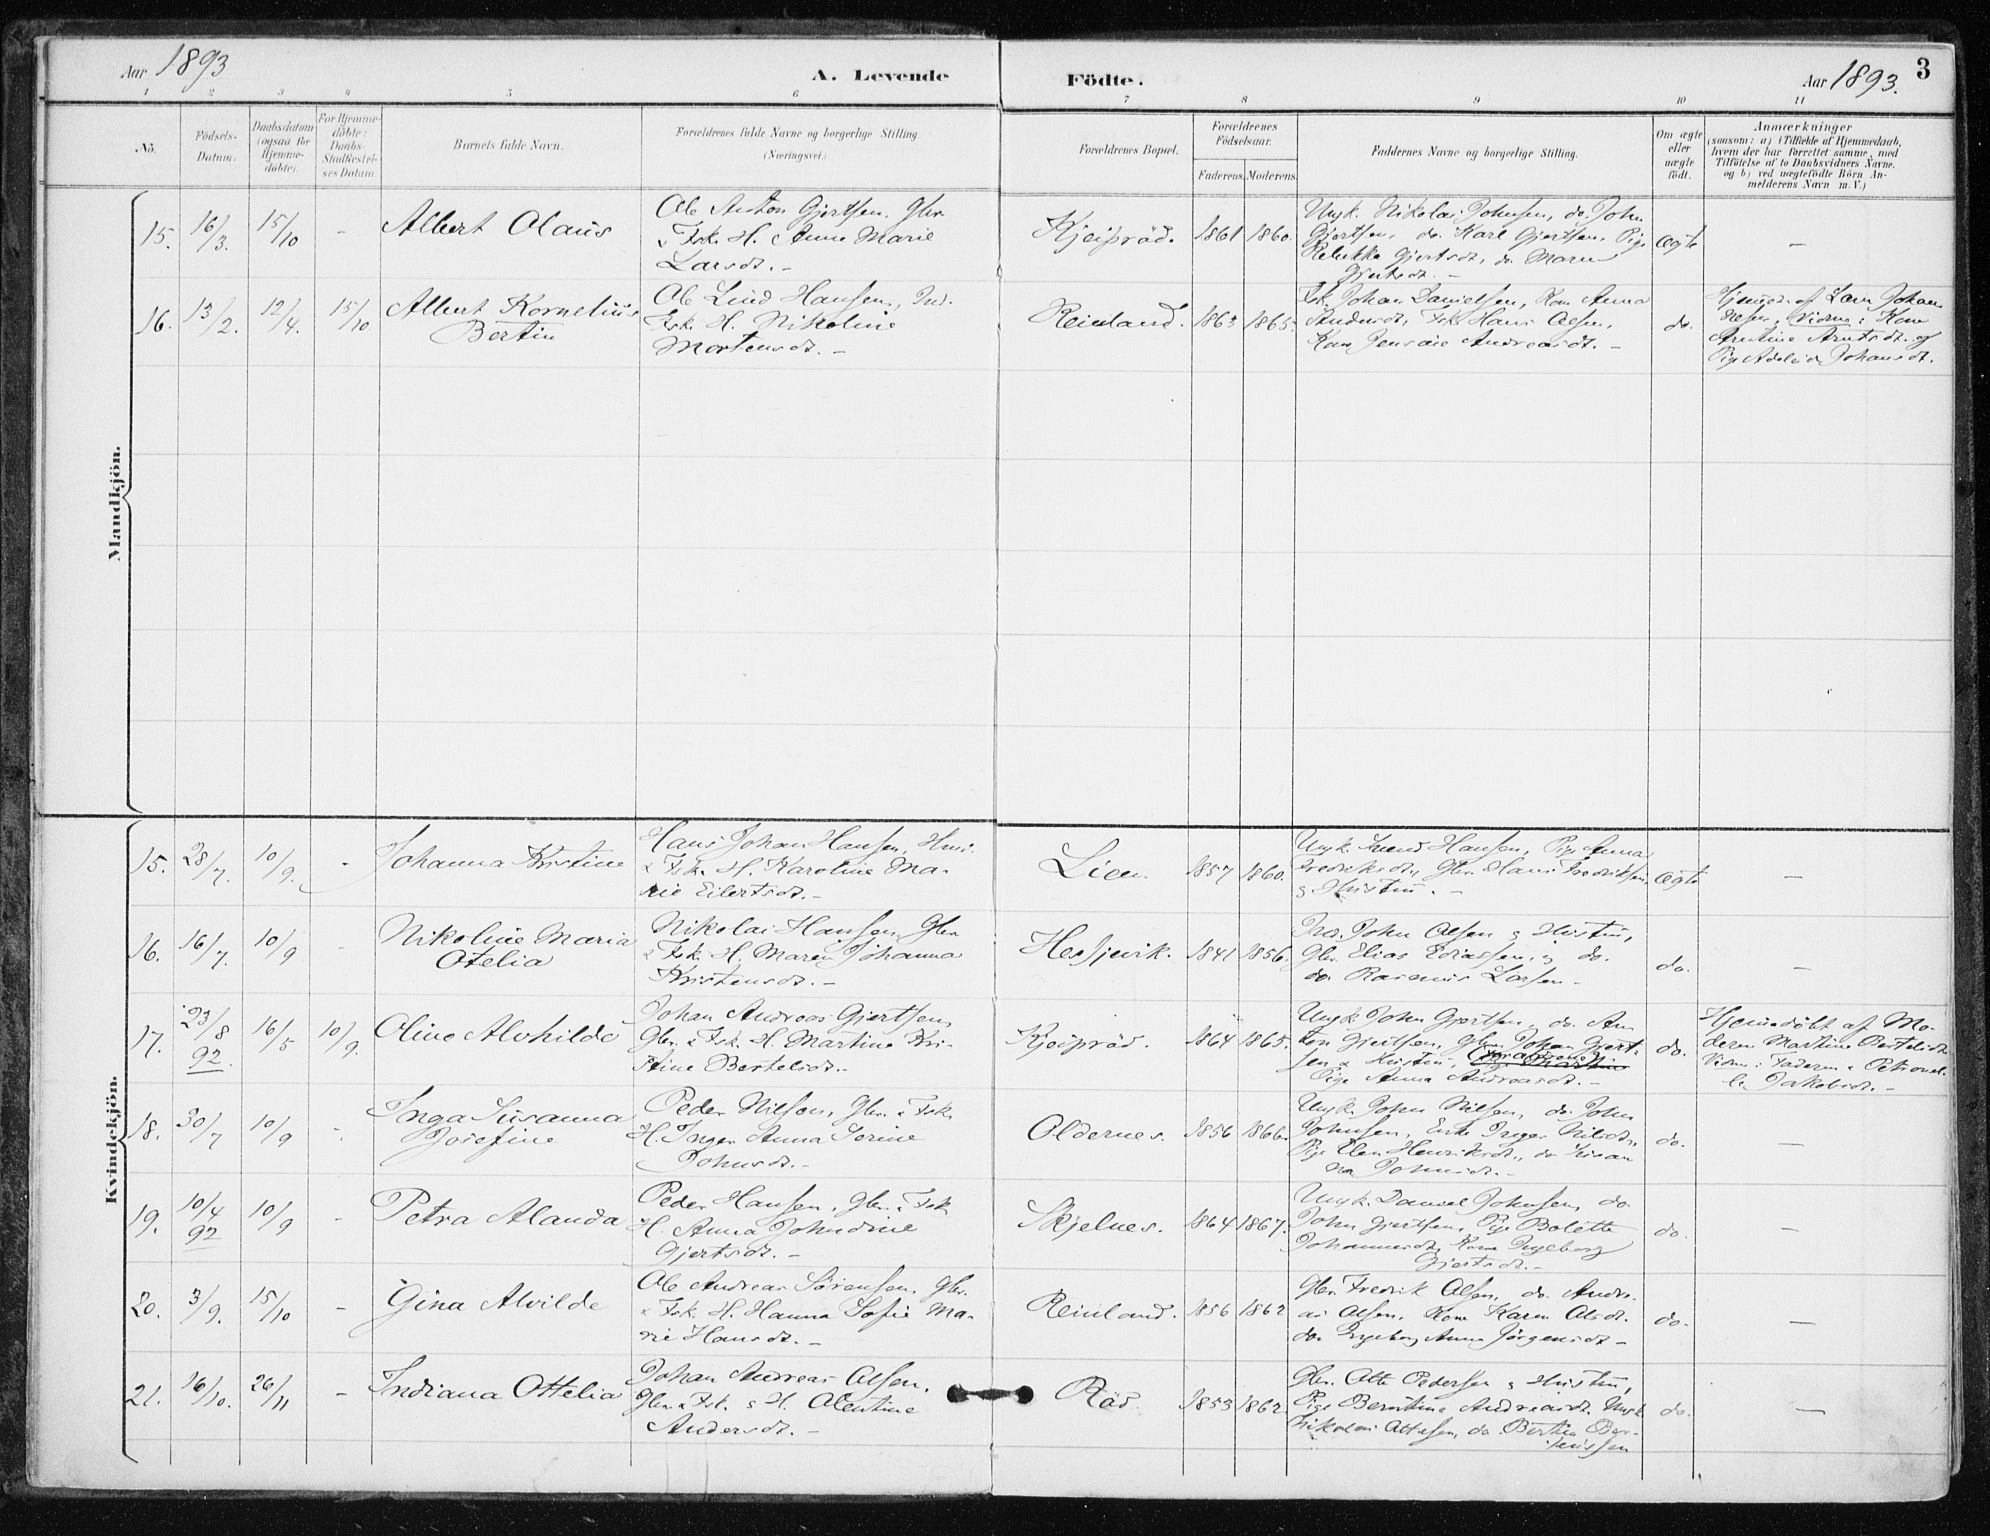 Aar 1893
A. Levende
Födte.
Aar 1893.
3
1 2 3 4 5 6 7 8 9 10 11
No.
Födsels-
Datum.
Daabsdatum
(ogsaa for
Hjemme-
döbte).
For Hjemme-
döbte:
Daabs-
Stadfestel-
ses Datum.
Barnets fulde Navn.
Forældrenes fulde Navne og borgerlige Stilling.
(Næringsvei.)
Forældrenes Bopæl.
Forældrenes
Födselsaar.
Faderens. Moderens.
Faddernes Navne og borgerlige Stilling.
Om ægte
eller
uægte
födt.
Anmærkninger
(saasom: a) i Tilfælde af Hjemmedaab,
hvem der har forrettet samme, med
Tilföielse af to Daabsvidners Navne,
og b) ved uægtefödte Börn An-
melderens Navn m. V.)
Mandkjön.
15. 16/3. 15/10 - Albert Olaus
Ole Anton Gjertsen, Gbr.
& Fsk. H. Anne Marie
Larsdt. -
Kjeipröd. 1861 1860.
Ungk. Nikolai Johnsen, do. John
Gjertsen, do. Karl Gjertsen, Pige
Rebekka Gjertsdt, do. Maren
Gjertsdt. -
Ægte -
16. 13/2. 12/4. 15/10. Albert Kornelius
Bertin
Ole Lind Hansen, Ind.
Fsk. H. Nikoline
Mortensdt. -
Reinland. 1863 1865.
Fsk. Johan Danielsen, Kone Anna
Andersdt, Fsk. Hans Olsen,
Kone Jensine Andreasdt. -
do.
Hjemmed. af Lars Johan-
nesen, Vidner: Kone
Arntine Arntsdt. og
Pige Adeleide Johansdt.
Kvindekjön.
15. 28/7. 10/9. - Johanna Kristine
Hans Johan Hansen, Husm.
& Fsk. H. Karoline Ma-
rie Eilertsdt. -
Lien. 1857 1860.
Ungk. Hansen, Pige Anna
Fredriksdt, Gbr. Hans Fredriksen
& Hustru. -
Ægte -
16. 16/7. 10/9 - Nikoline Maria
Otelia
Nikolai Hansen, Gbr.
& Fsk. H. Maren Johanna
Kristensdt. -
Hessjevik. 1841 1856.
Ind. John Olsen & Hustru,
Gbr. Elias Eliassen, & do.
do. Rasmus Larsen -
do. -
17. 23/8 92 16/5 10/9. Oline Alvhilde
Johan Andreas Gjertsen,
Gbr. & Fsk. H. Martine Kri-
stine Bertelsdt. -
Kjeipröd. 1864 1865.
Ungk. John Gjertsen, do. An-
ton Gjertsen, Gbr. Johan Gjert-
sen & Hustru,
Pige Anna Andreasdt. -
do.
Hjemmedöbt af Mo-
deren Martine Bertelsdt.
Vidner: Faderen & Petronel-
le Jakobsdt. -
18. 30/7 10/9 - Inga Susanna
Josefine
Peder Nilsen, Gbr. & Fsk.
H. Inger Anna Serine
Johnsdt. -
Oldernes. 1856 1866.
Ungk. John Nilsen, do. John
Johnsen, Enke Inger Nilsdt,
Pige Elen Henriksdt., do. Susan-
na Johnsdt. -
do. -
19. 10/4 92 10/9 - Petra Alanda
Peder Hansen, Gbr. & Fsk.
H. Anna Johndine
Gjertsdt. -
Skjelnes. 1864 1867.
Ungk. Daniel Johnsen, do.
John Gjertsen, Pige Bolette
Johannesdt, Kone Ingeborg
Gjertsdt. -
do. -
20. 3/9. 15/10 - Gina Alvilde
Ole Andreas Sörensen, Gbr.
& Fsk. H. Hanna Sofie Ma-
rie Hansdt. -
Reinland. 1856 1862
Gbr. Fredrik Olsen, do. Andre-
as Olsen, Kone Karen Olsdt.
do. Ingeborg Anna Jörgensdt -
do. -
21. 16/10. 26/11 - Indiana Ottelia
Johan Andreas Olsen,
Gbr. & Fsk. & H. Olentine
Andersdt. -
Röd. 1853 1862.
Gbr. Otte Pedersen & Hustru,
Pige Berntine Andreasdt. Ungk.
Nikolai Ottesen, do. Bertin Ber-
do. -